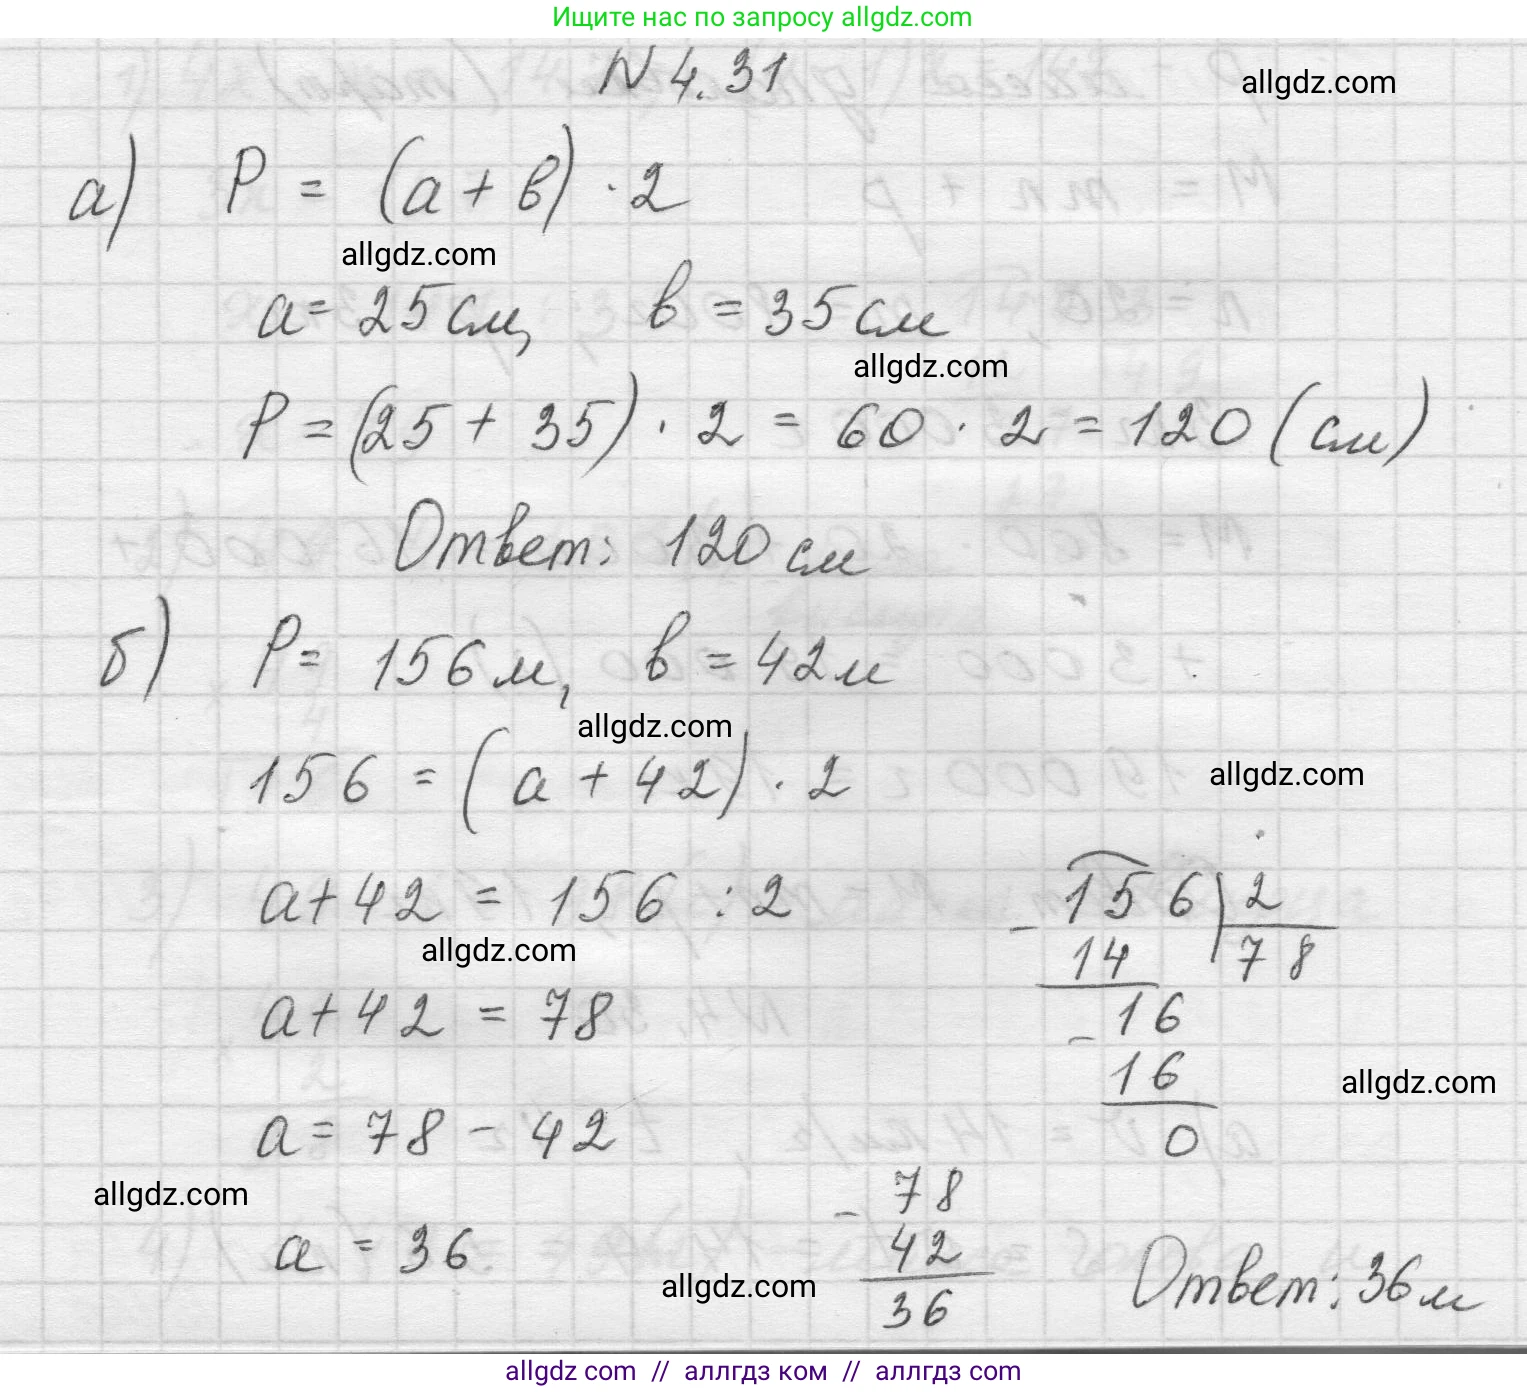 Ищите нас по запросу allgdz.com
N 4.31
allgdz.com
а) P = (a + b) · 2
allgdz.com
a = 25 см, b = 35 см
allgdz.com
P = (25 + 35) · 2 = 60 · 2 = 120 (см)
Ответ: 120 см
б) P = 156 м, b = 42 м
allgdz.com
156 = (a + 42) · 2
allgdz.com
a + 42 = 156 : 2
allgdz.com
a + 42 = 78
a = 78 - 42
allgdz.com
a = 36
allgdz.com
- 156 | 2
14 78
- 16
16
0
allgdz.com
- 78
42
36
Ответ: 36 м
allgdz.com // аллгдз ком // аллгдз com